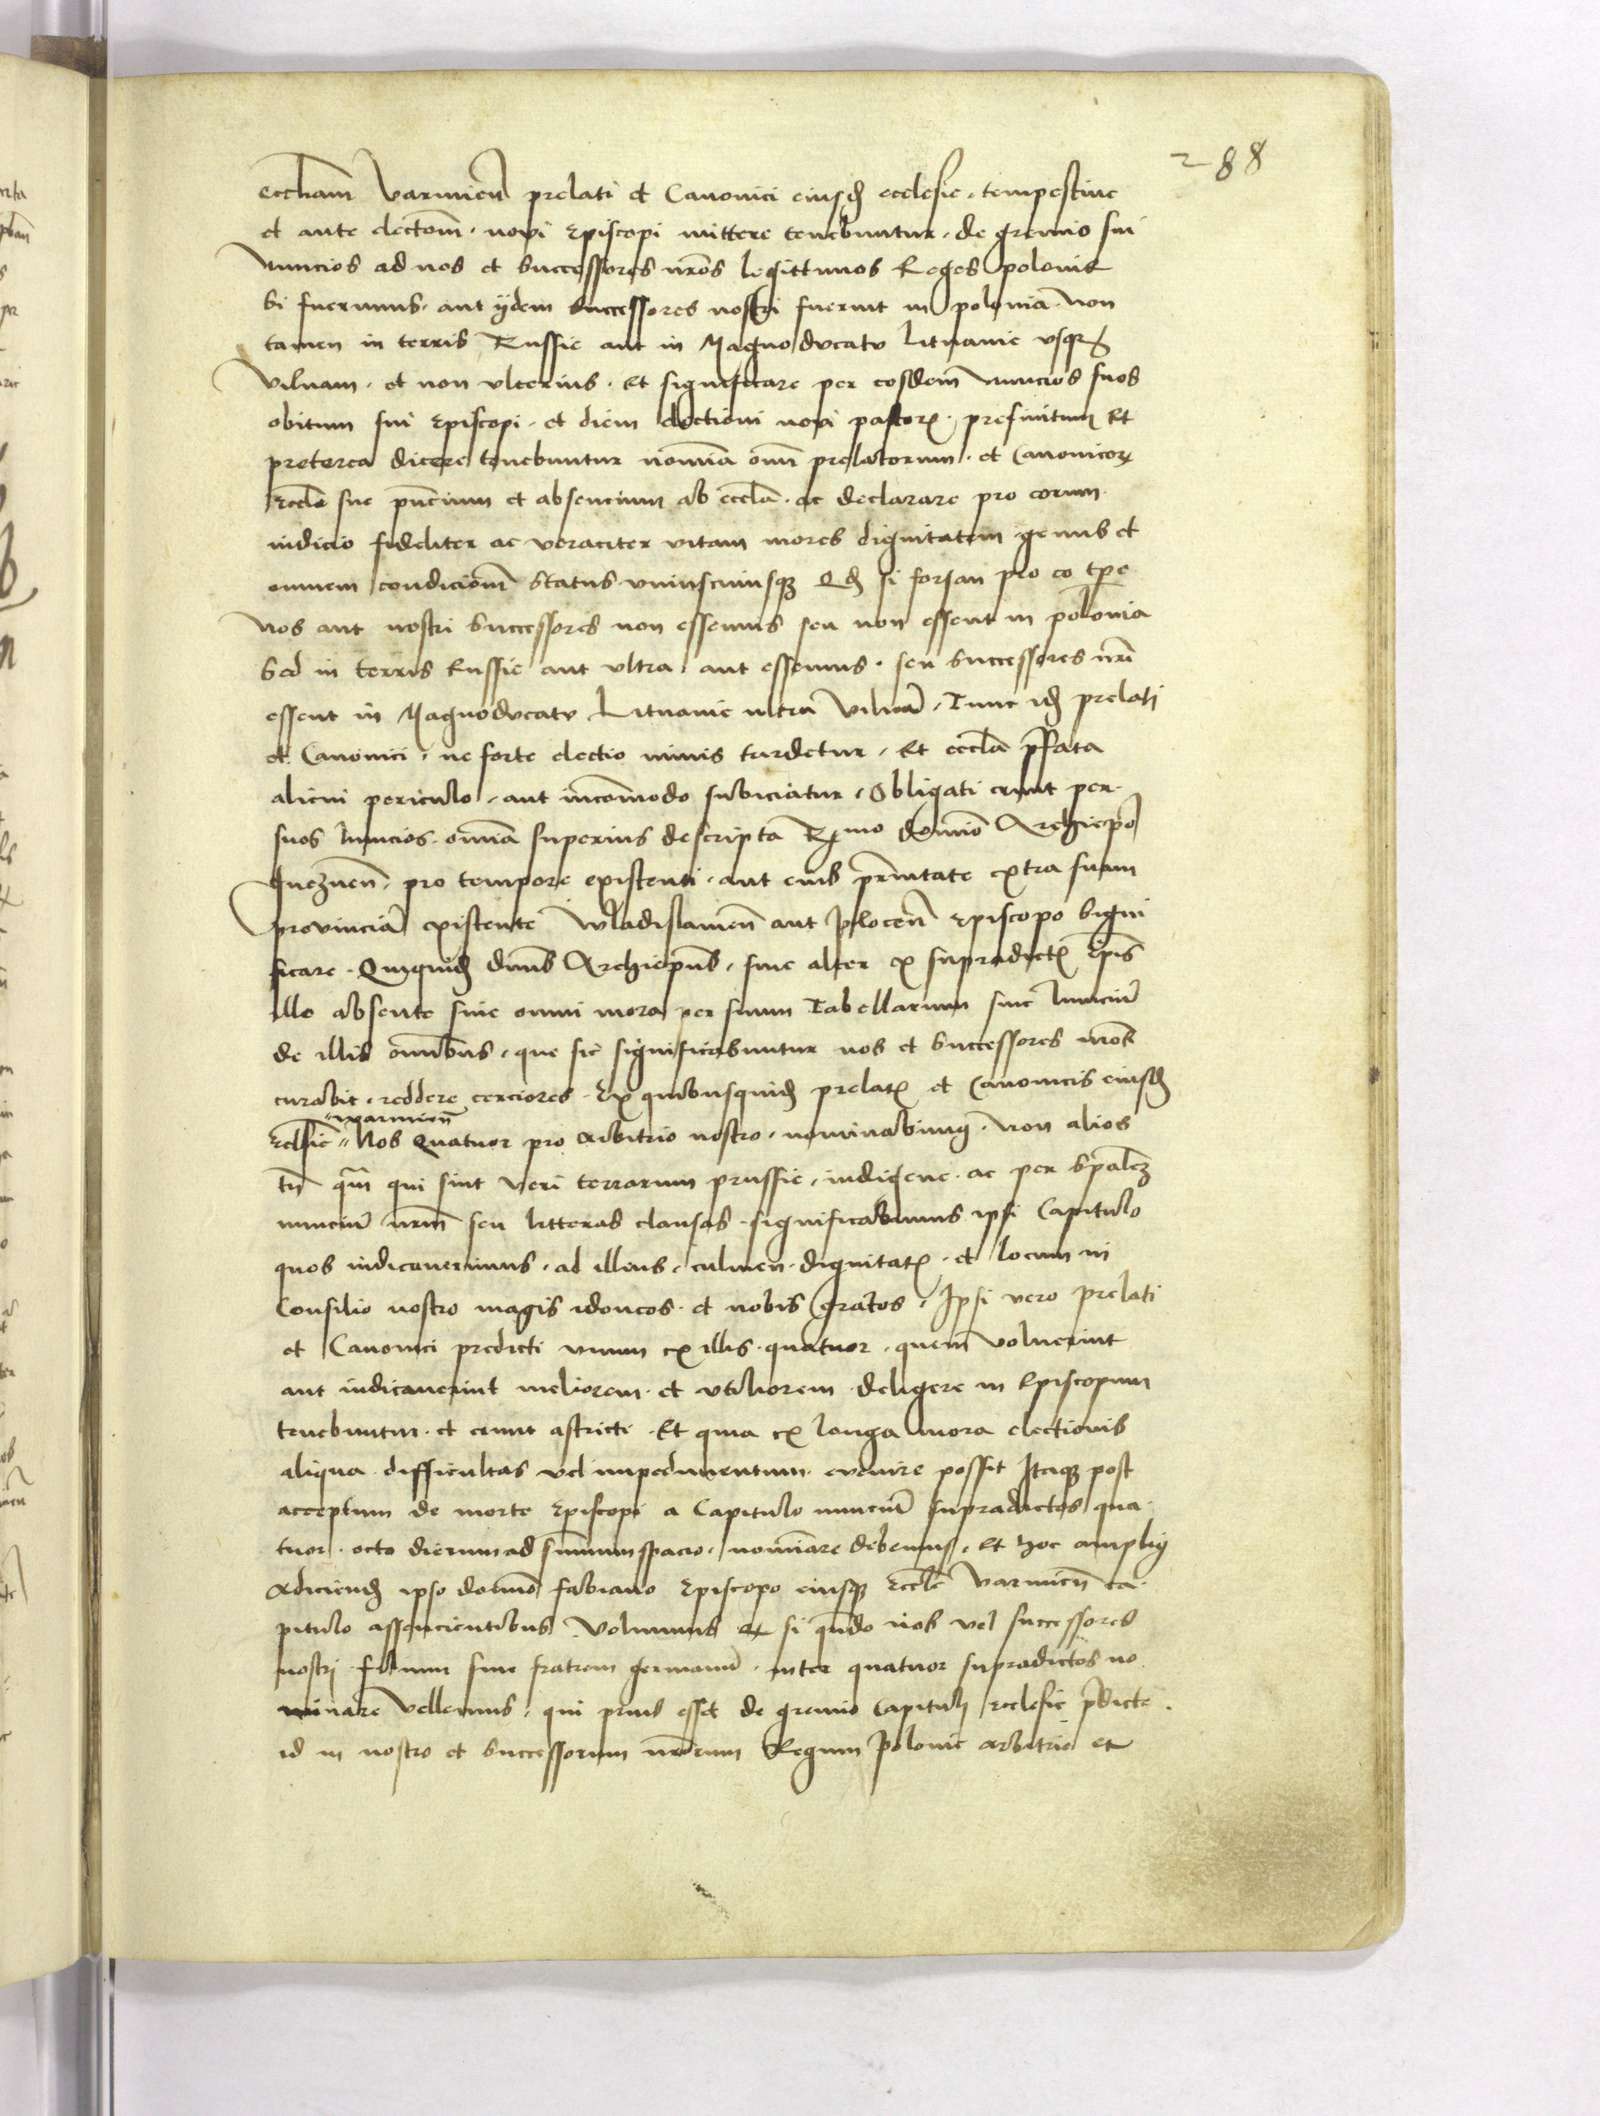 288
eccl(es)iam Varmien(sem) prelati et Canonici eiusd(em) ecclesie, tempestiue
et ante elect(i)o(ne)m novi Episcopi mittere tenebuntur de gremio sui
Nuncios ad nos et Successores n(ost)ros legittimos Reges polonie
Si fuerimus, aut ijdem Successores nostri fuerint in polonia Non
tamen in terris Russie aut in Magnoducatu Lituanie vsq(ue)
Vilnam et non vlterius. Et significare per eosdem nuncios suos
obitum sui Episcopi et diem electioni novi pastor(is) prefinitum Et
preterea dicere tenebuntur nomi(n)a om(n)i(um) prelatorum et Canonicor(um)
eccl(es)ie sue p(rese)ncium et absencium ab eccl(es)ia ac declarare pro eorum
iudicio fideliter ac veraciter vitam mores dignitatem genus et
omnem condicionem Status vniuscuiusq(ue) Q(uo)d si forsan pro eo t(em)p(or)e
Nos aut nostri Successores non essemus seu non essent in polonia
Sed in terris Russie aut vltra aut essemus seu Successores n(ost)ri
essent in Magnoducatu Lituanie ultra Vilna(m), Tunc iid(em) prelati
et Canonici, ne forte electio nimis tardetur, Et eccl(es)ia p(re)fata
alicui periculo, aut incom(m)odo subiciatur, Obligati erunt per
suos Nuncios omnia superius descripta R(everendissi)mo domino Archiep(iscop)o
Gneznen(si) pro tempore existenti, aut eius p(ro)xi(m)itate extra suam
provincia(m) existente Wladislauien(si) aut plocen(si) Episcopo Signi
ficare. Quiquid(em) d(omi)nus Archiep(iscop)us, siue alter ex supradict(is) Ep(iscop)is
illo absente sine omni mora per suum Tabellarium siue Nunciu(m)
de illis omnibus, que sic significabuntur nos et Successores n(ost)ros
curabit reddere certiores. Ex quibusquid(em) prelat(is) et Canonicis eiusd(em)
Warmien(sis)
Eccl(es)ie Nos Quatuor pro arbitrio nostro nominabim(us) Non alios
t(ame)n q(ua)m qui sint veri terrarum prussie, indigene ac per sp(eci)alem
nunciu(m) n(ost)r(u)m seu litteras clausas significabimus ipsi Capitulo
quos iudicauerimus ad illius culmen dignitat(is) et locum in
Consilio nostro magis idoneos et nobis gratos, Ipsi vero prelati
et Canonici predicti vnum ex illis quatuor, quem voluerint
aut iudicauerint meliorem et vtiliorem deligere in Episcopum
tenebuntur et erunt astricti Et quia ex longa mora electionis
aliqua difficultas vel impedimentum evenire possit Itaq(ue) post
acceptum de morte Episcopi a Capitulo nunciu(m) supradictos qua
tuor octo dierum ad summum spacio, nominare debemus, Et hoc amplius
Adiciend(o) ipso domino fabiano Episcopo eiusq(ue) eccl(es)ie Varmien(sis) ca
pitulo assencientibus Volumus ut si qua(n)do nos vel successores
nostri filium siue fratrem germanu(m) inter quatuor supradictos no
minare Vellemus, qui prius esset de gremio Capituli ecclesie p(re)dicte
id in nostro et Successorum n(ost)rorum Regum Polonie arbitrio et